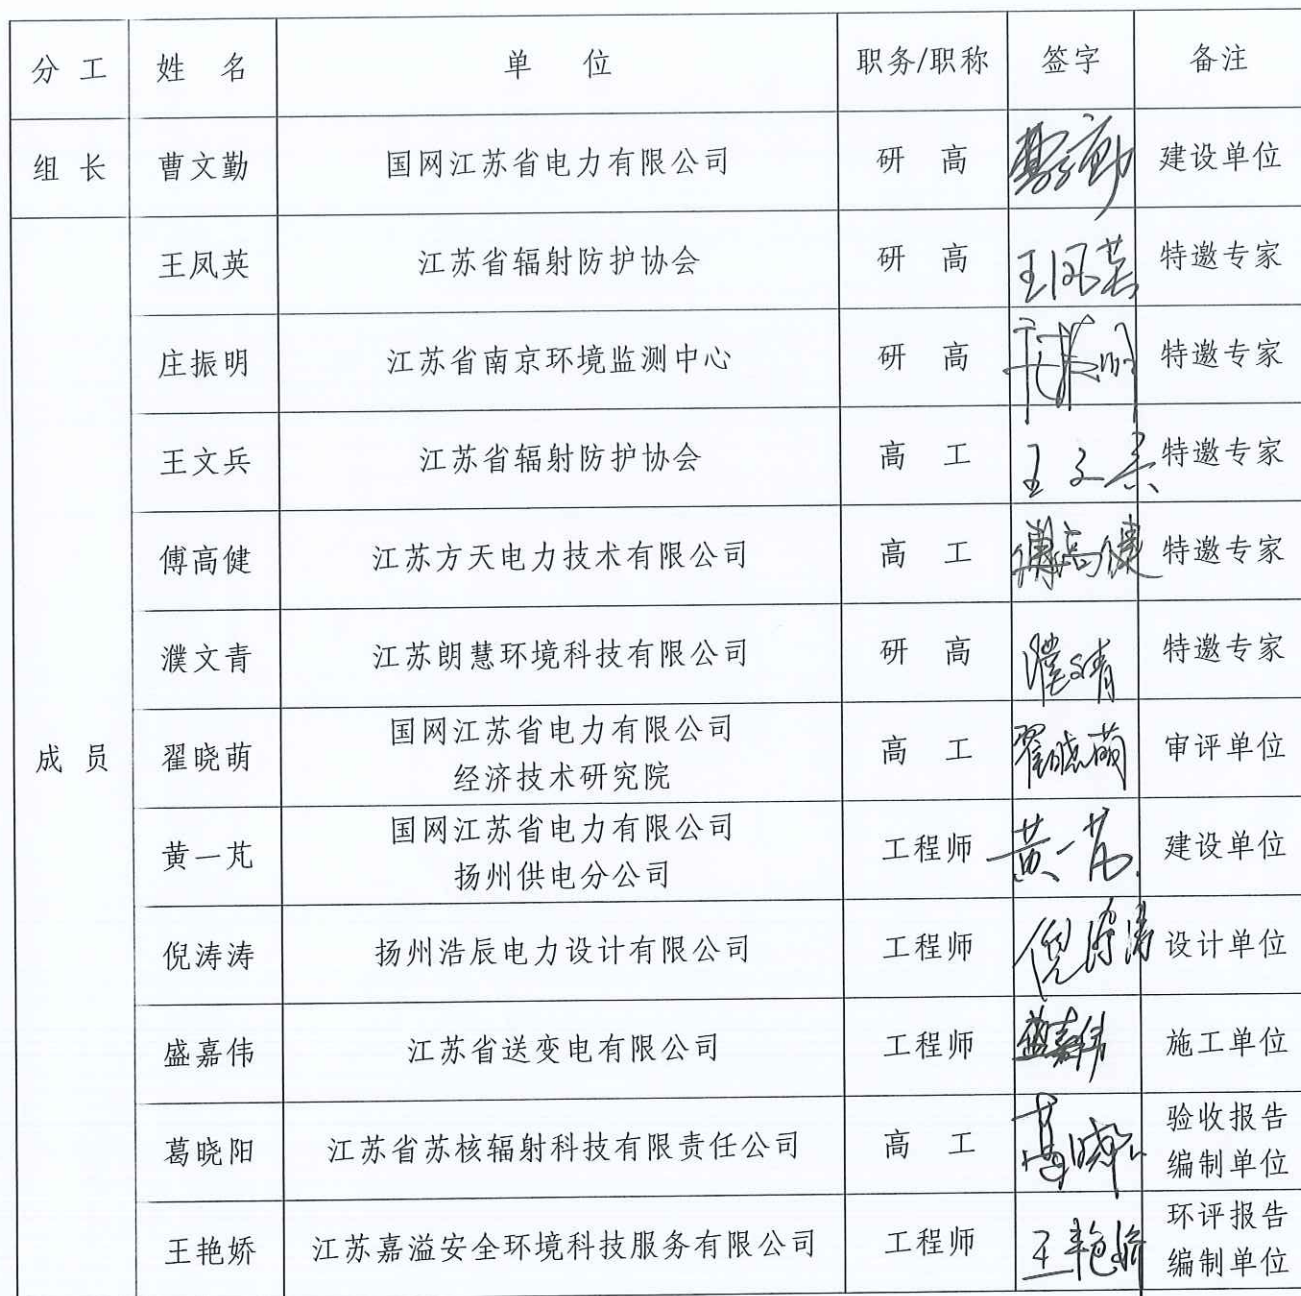 分 工 姓 名 单 位 职务/职称 签字 备注
组 长 曹文勤 国网江苏省电力有限公司 研 高 曹文勤 建设单位
王凤英 江苏省辐射防护协会 研 高 王凤英 特邀专家
庄振明 江苏省南京环境监测中心 研 高 庄振明 特邀专家
王文兵 江苏省辐射防护协会 高 工 王文兵 特邀专家
傅高健 江苏方天电力技术有限公司 高 工 傅高健 特邀专家
濮文青 江苏朗慧环境科技有限公司 研 高 濮文青 特邀专家
成 员 翟晓萌 国网江苏省电力有限公司
经济技术研究院 高 工 翟晓萌 审评单位
黄一芃 国网江苏省电力有限公司
扬州供电分公司 工程师 黄一芃 建设单位
倪涛涛 扬州浩辰电力设计有限公司 工程师 倪涛涛 设计单位
盛嘉伟 江苏省送变电有限公司 工程师 盛嘉伟 施工单位
葛晓阳 江苏省苏核辐射科技有限责任公司 高 工 葛晓阳 验收报告
编制单位
王艳娇 江苏嘉溢安全环境科技服务有限公司 工程师 王艳娇 环评报告
编制单位